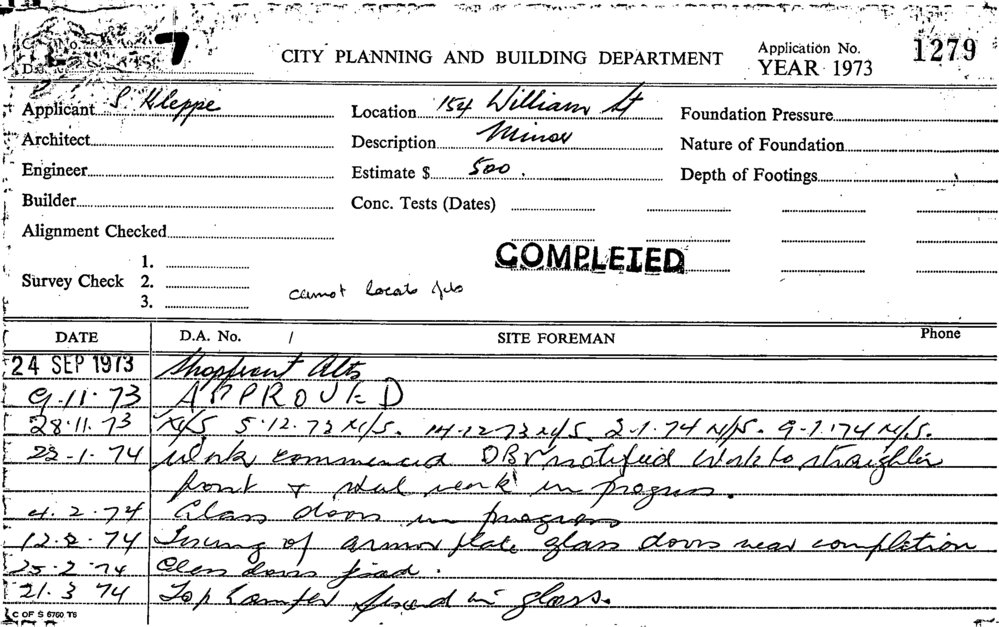 7
CITY PLANNING AND BUILDING DEPARTMENT
Application No. 1279
YEAR 1973
Applicant S. Kleppe
Location 154 William St
Foundation Pressure
Architect
Description Minor
Nature of Foundation
Engineer
Estimate $ 500.
Depth of Footings
Builder
Conc. Tests (Dates)
Alignment Checked
COMPLETED
Survey Check 1.
2.
3.
cannot locate
DATE D.A. No. / SITE FOREMAN Phone
24 SEP 1973 Shopfront Alts
9.11.73 APPROVED
28.11.73 N/S 5.12.73 N/S. 14.12.73 N/S 2.1.74 N/S. 9.1.74 N/S.
22.1.74 Work commenced notified Work to
front & steel work in progress.
4.2.74 Glass doors in progress
12.2.74 Fixing of armor plate glass doors near completion
25.2.74 Glass doors fixed.
21.3.74 Top fixed in glass.
C OF S 6760 T6